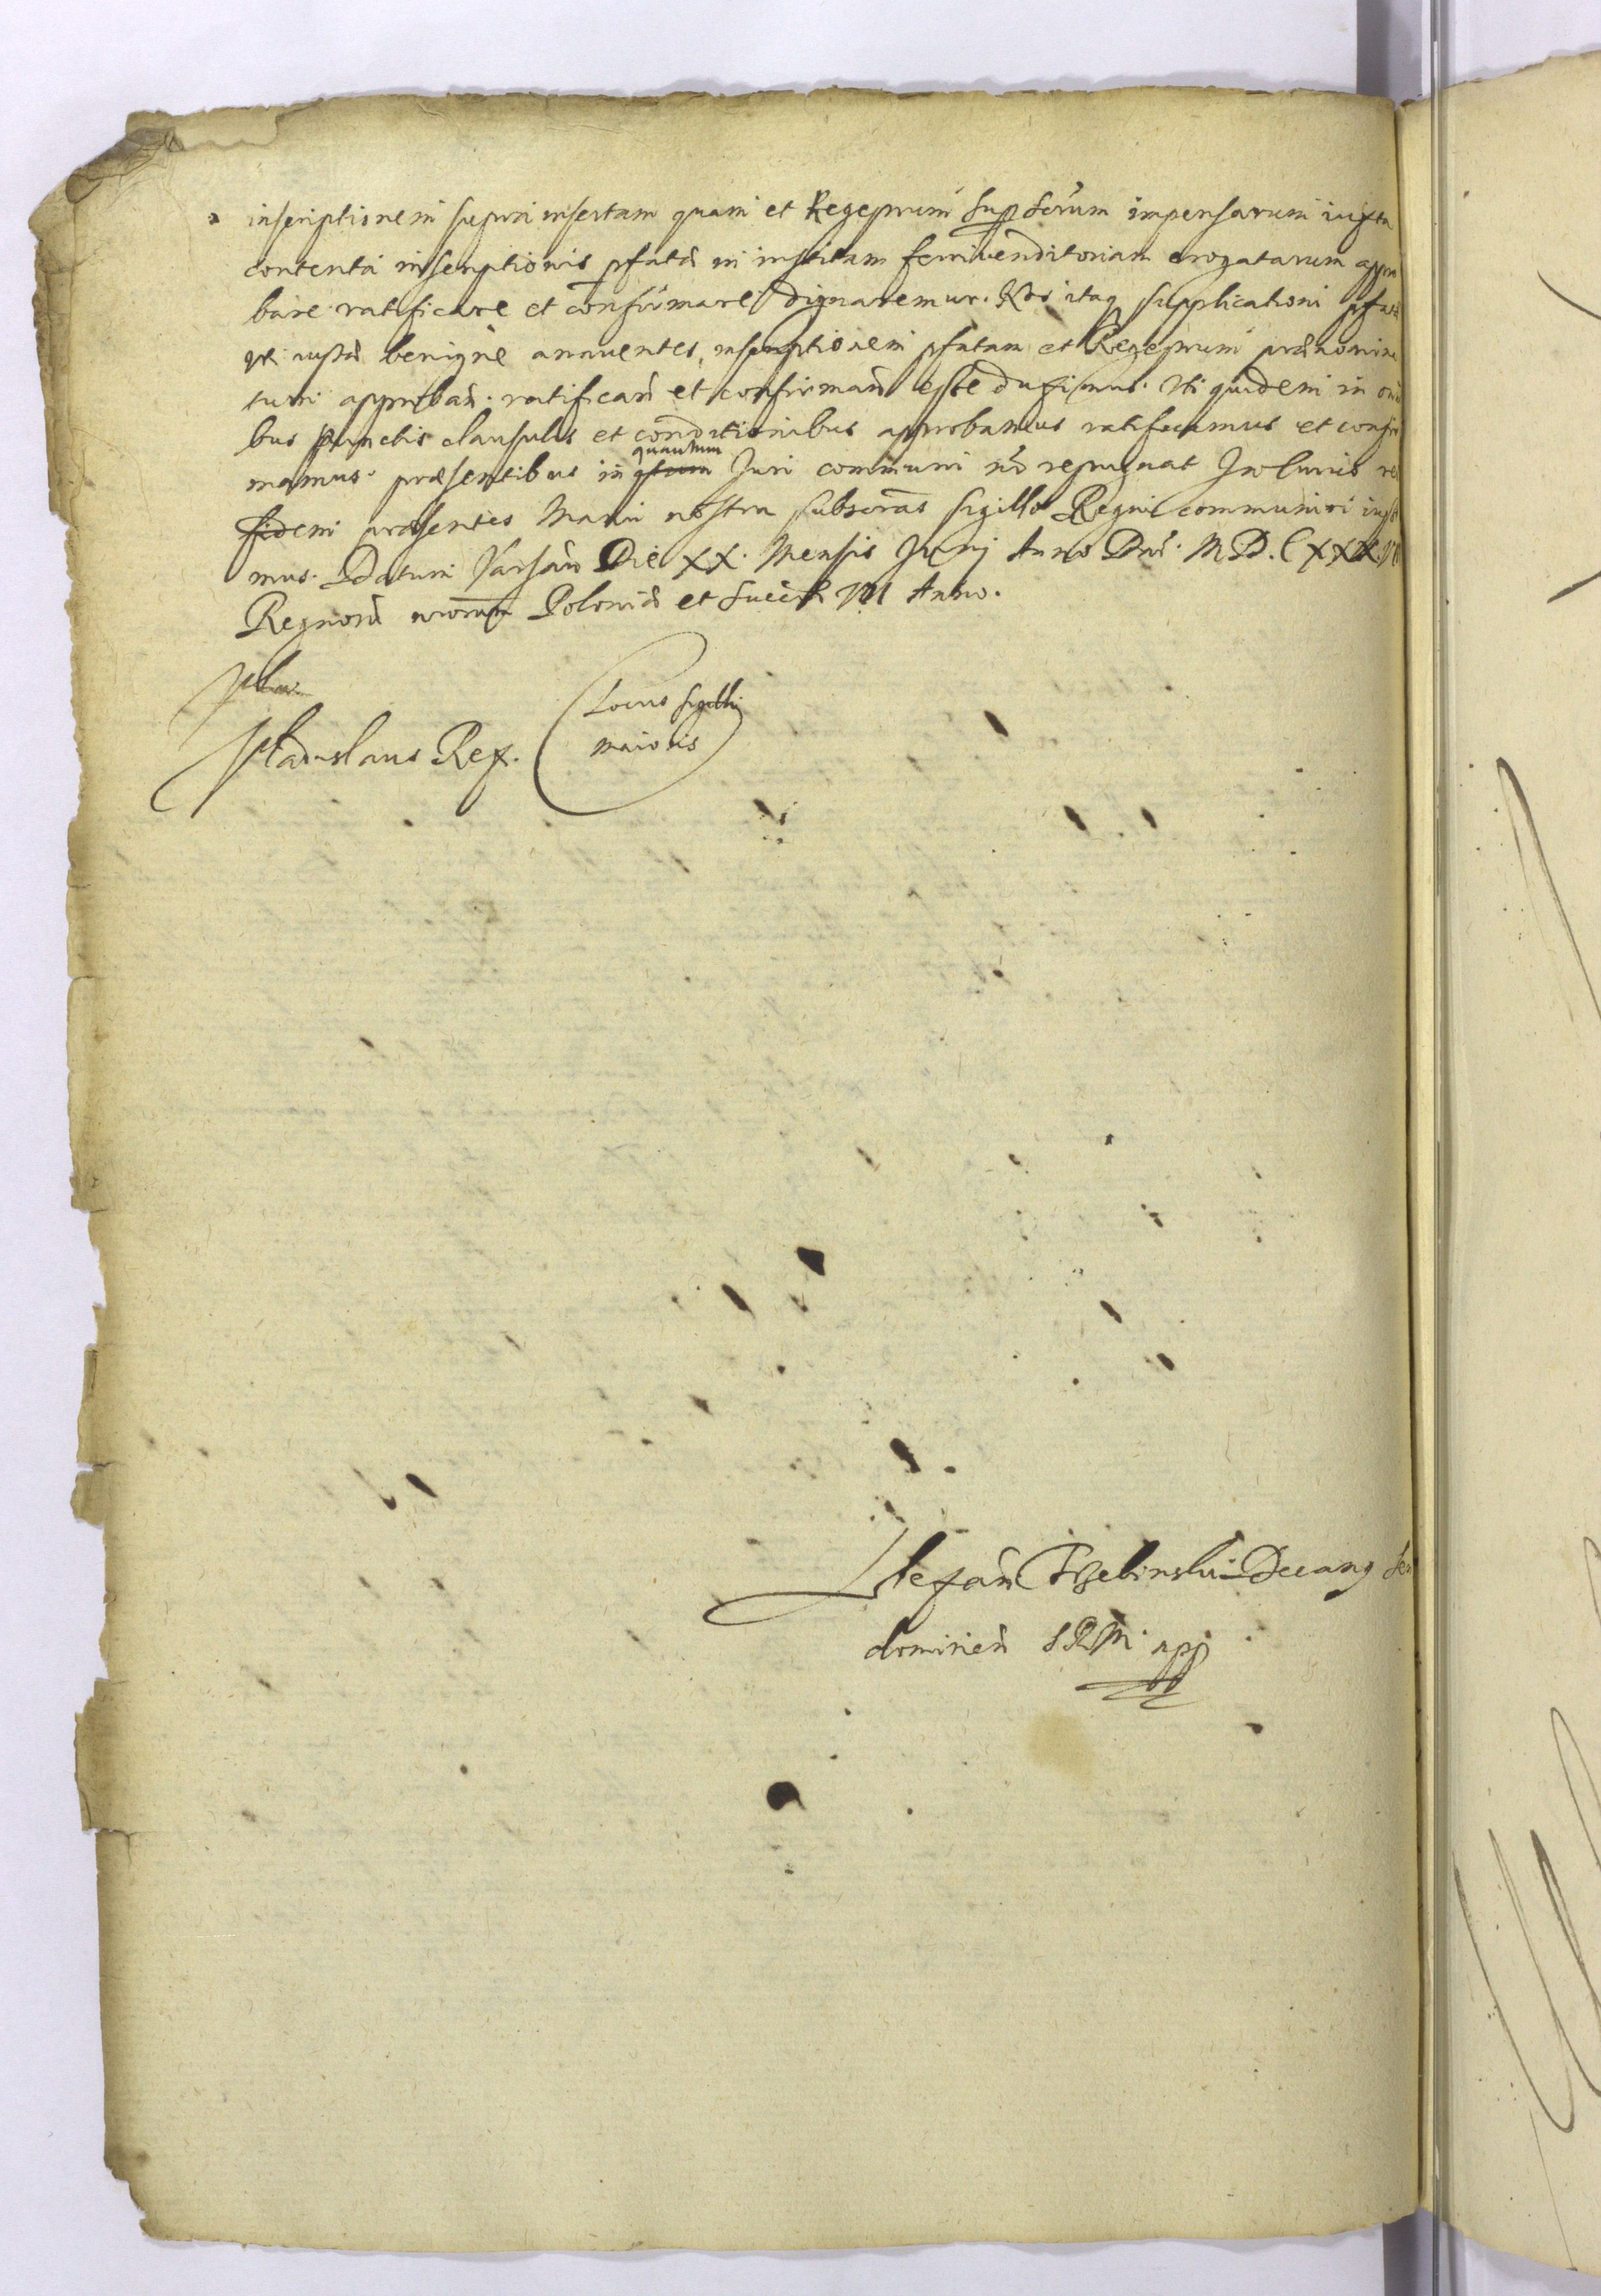 inscriptionem supra insertam quam et Regeprum sup serum impensarum iuxta
contenta inscriptionis pfatæ in institam ferrivenditoriam erogatarum appro
bare ratificare et confirmare dignaremur. Nos itaq supplicationi pfatæ
uti iustæ benignè annuentes, inscriptionem pfatam et Regeprum prænomina
tum approban. ratifican et confirman esse duximus. Uti quidem in omni
bus punctis clausulis et conditionibus approbamus ratificamus et confir
mamus præsentibus in quantum Juri communi nõ repugnat In cuius rei
fidem præsentes Manu nostra subscras sigillo Regni communiri iussi
mus. Datum Varsaw Die XX. Mensis Junij Anno Dni. M.D.C XXX
Regnorũ nrorum Poloniæ et Sueciæ VII Anno.
Vladislaus Rex.
Locus sigilli
maioris
Stefan Decang
S R M mpp